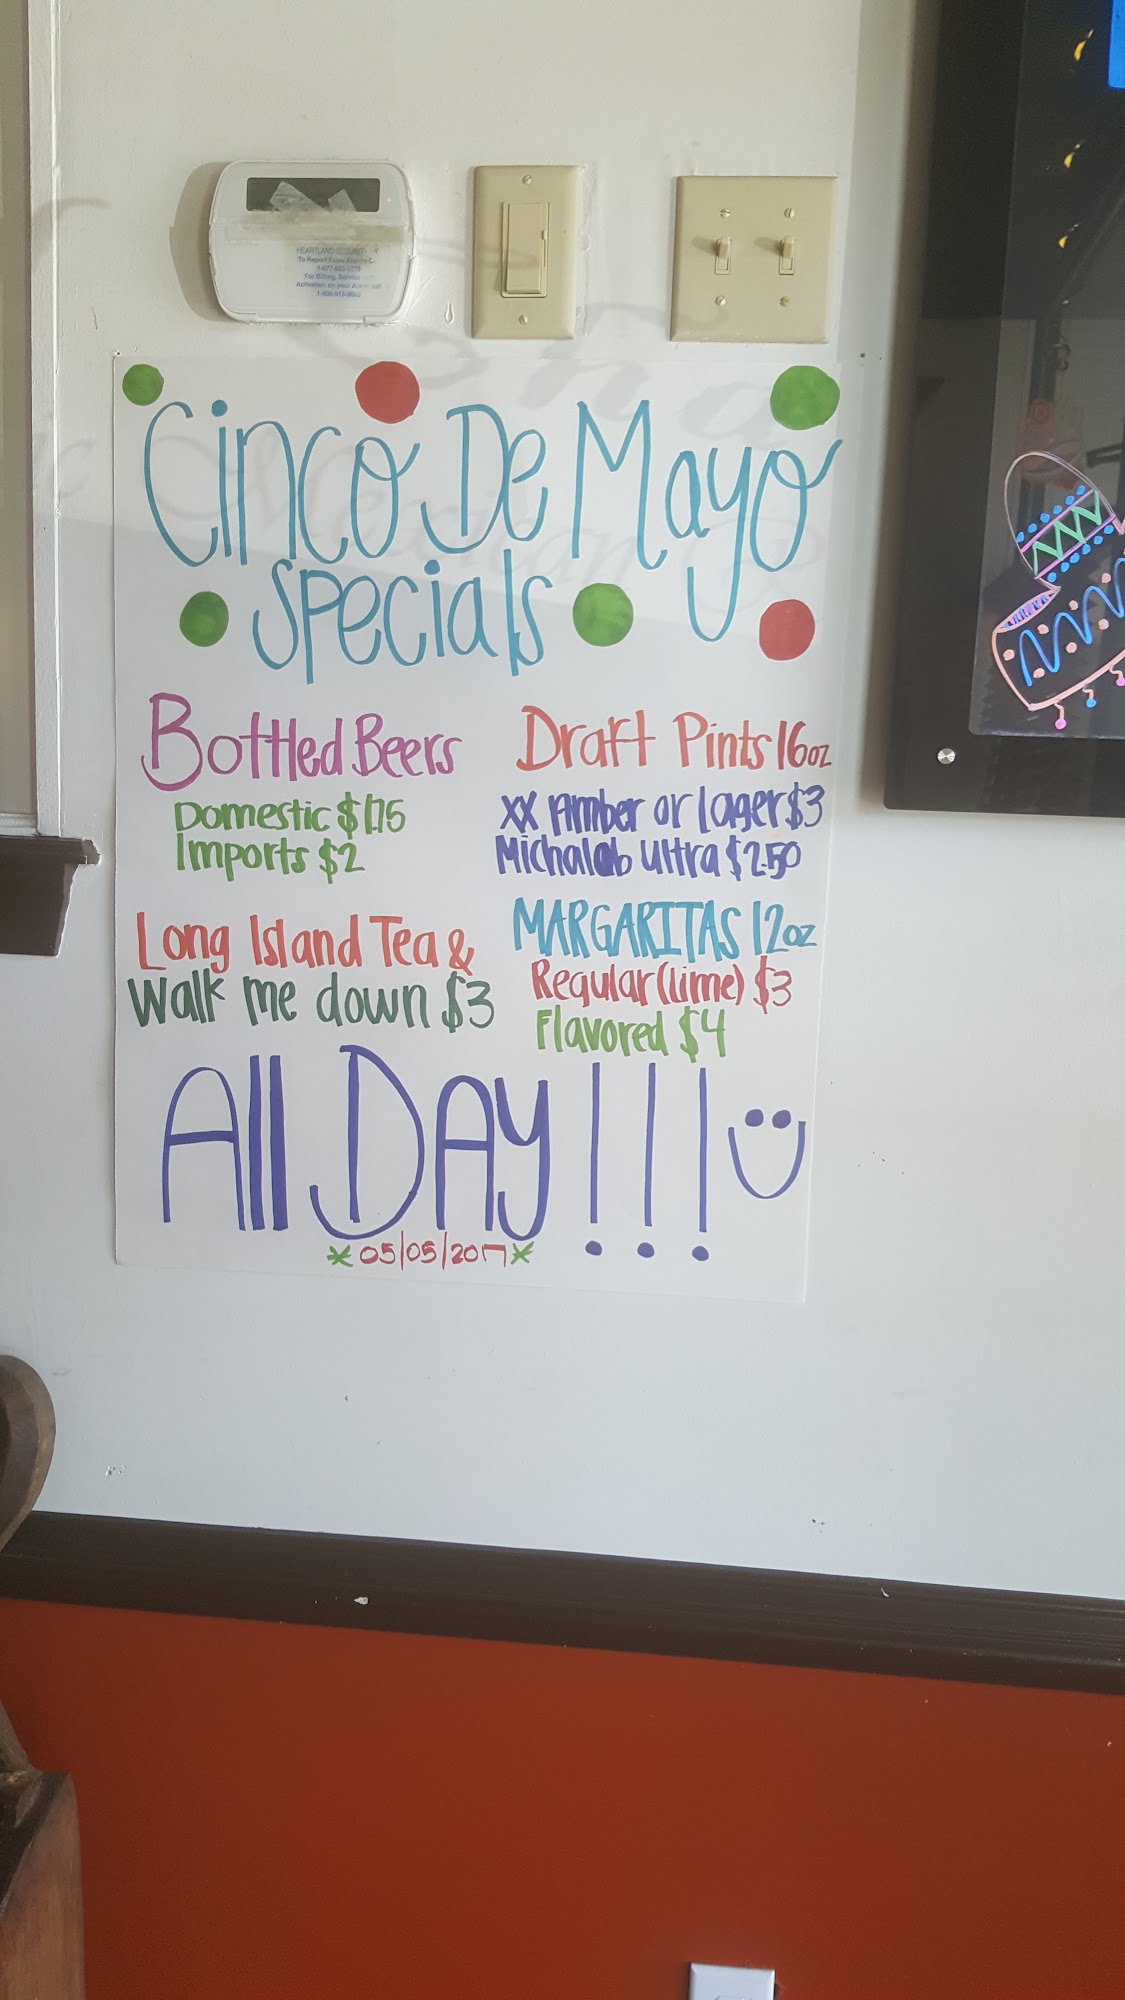 HEARTLAND SECURITY
To Report False Alarms C
For Billing, Service
Activation on your Alarm call
Cinco De Mayo
Specials
Bottled Beers
Domestic $1.75
Imports $2
Draft Pints 16oz
XX Amber or Lager $3
Michalob Ultra $2.50
Long Island Tea &
Walk me down $3
MARGARITAS 12oz
Regular (lime) $3
Flavored $4
All DAY!!!
*05/05/2017*